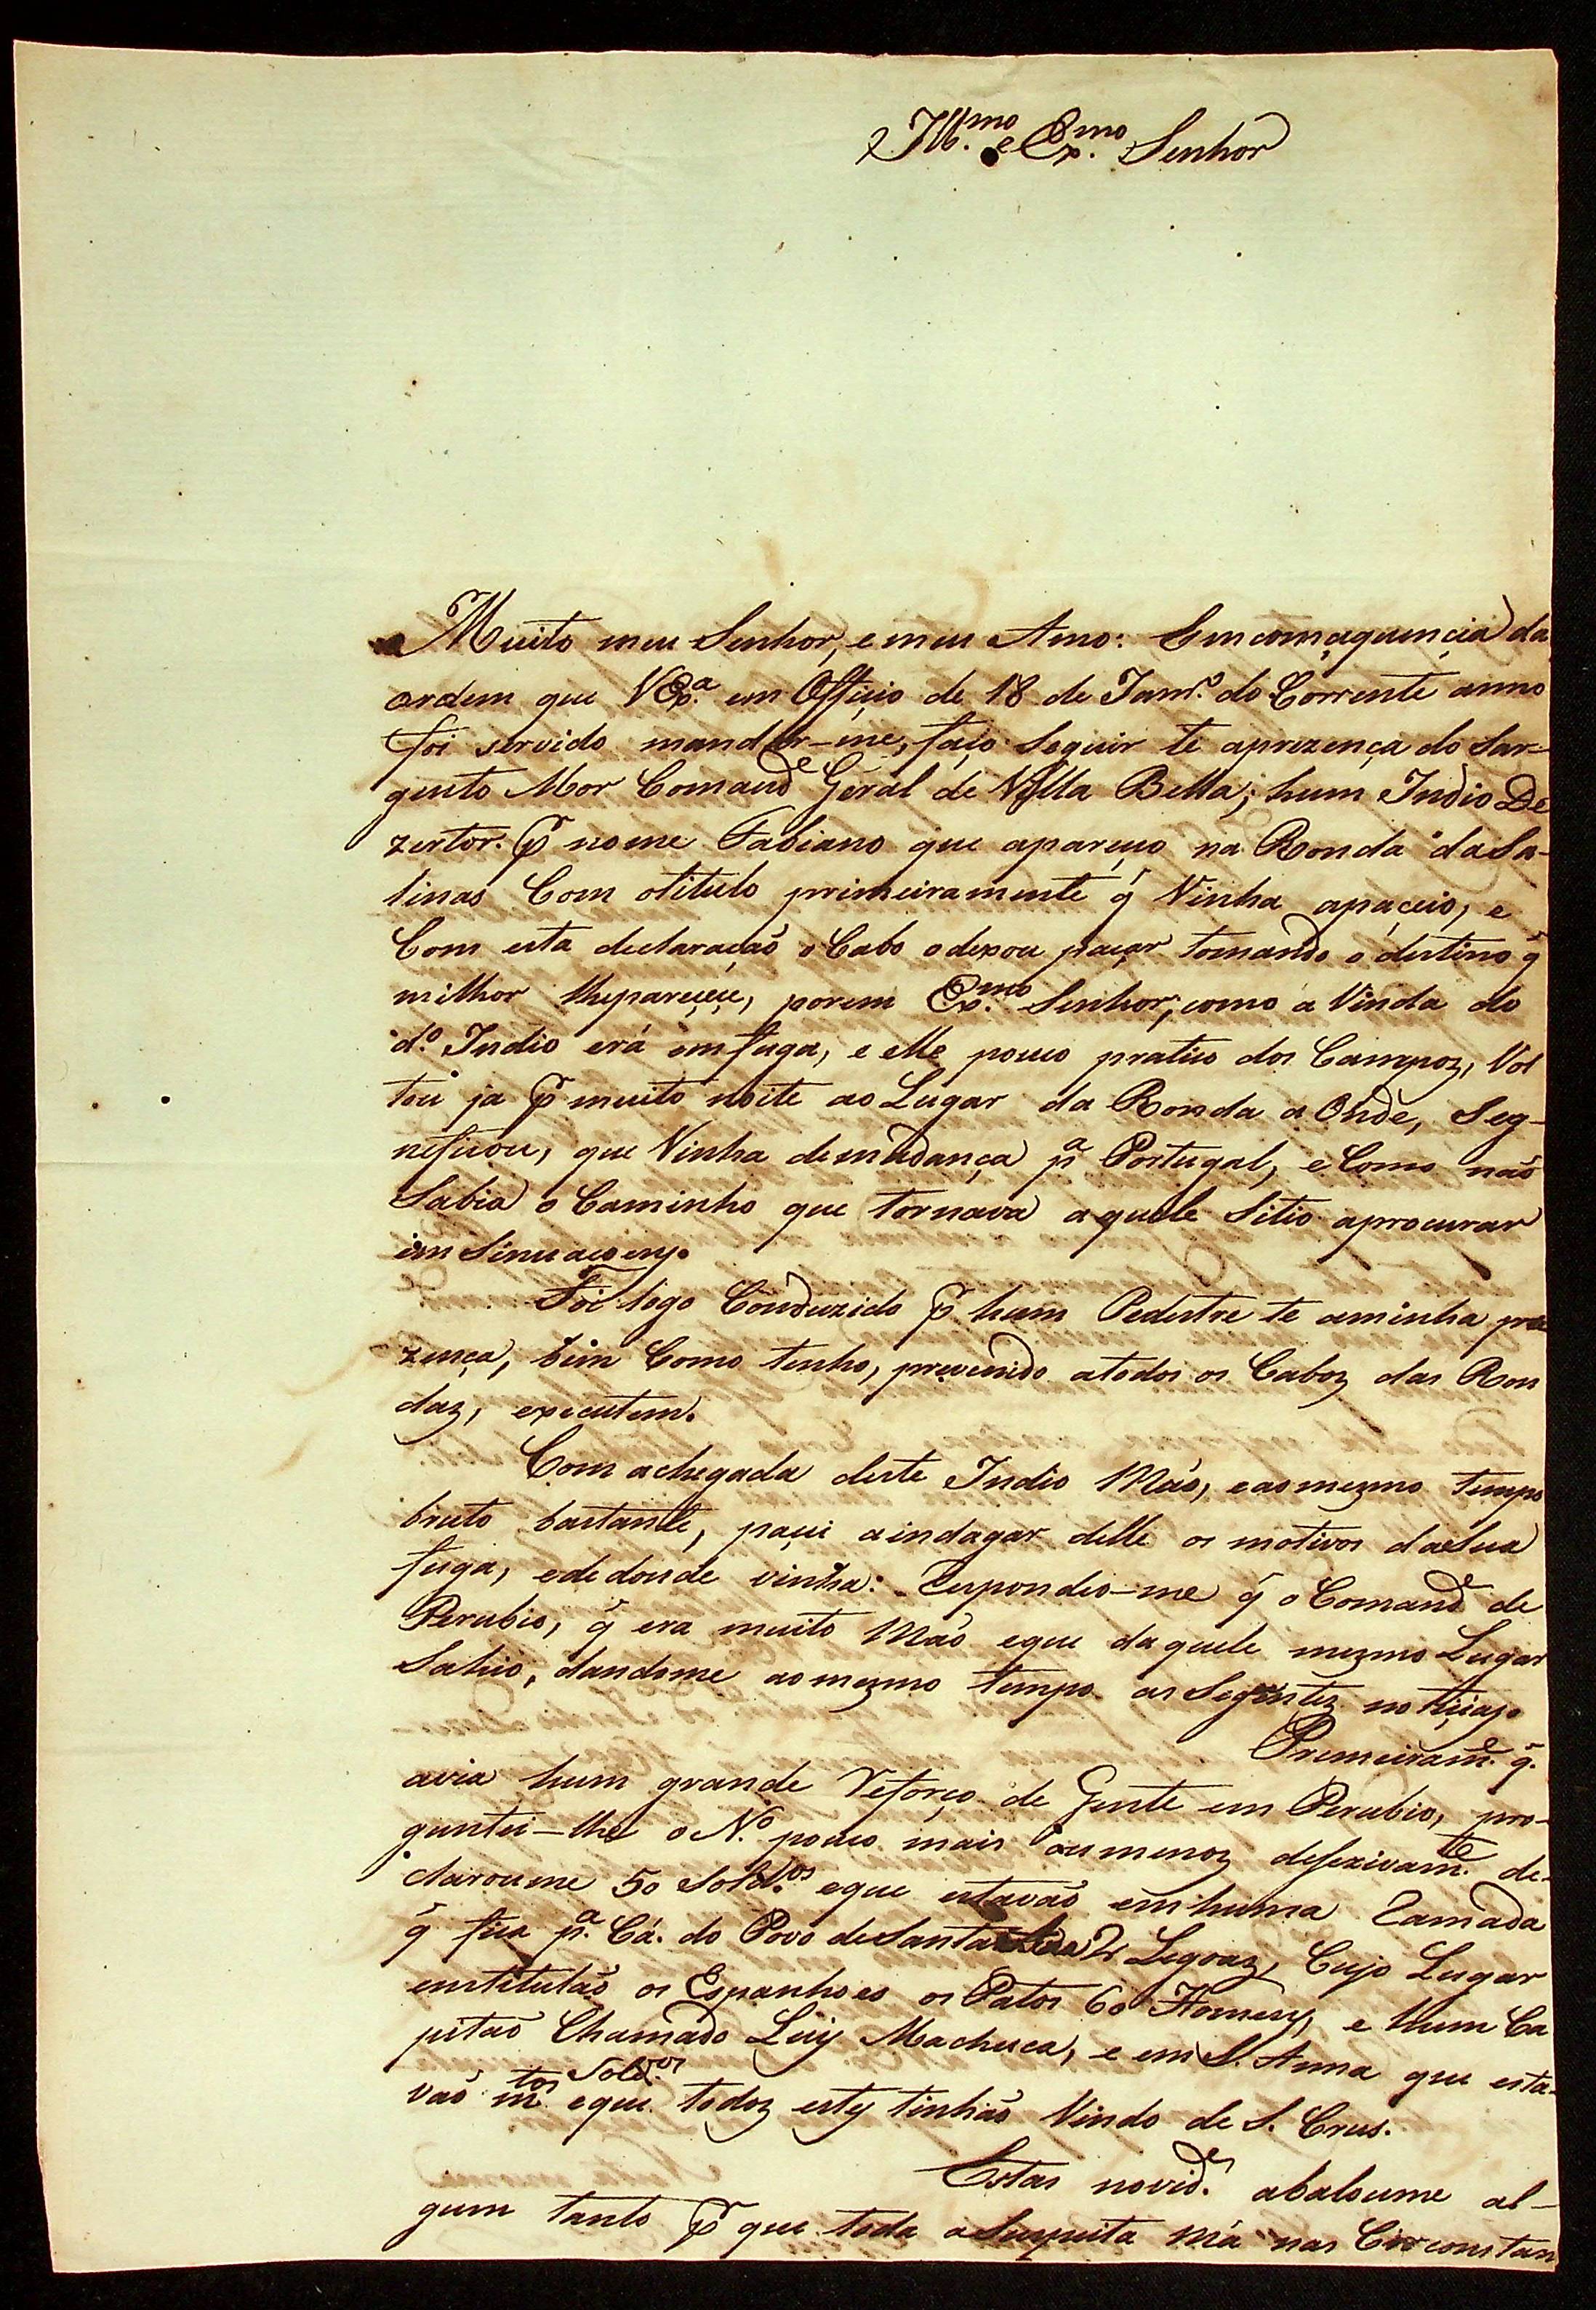 Ill.mo e Ex.mo Senhor
Muito meu Senhor, e meu Amo: Em comçaquencia da
ordem que VEx.a em Officio de 18 de Janr.o do Corrente anno
foi servido mandar-me, faço seguir te aprezença do Sar-
gento Mor Comand.e Geral de Villa Bella; hum Indio De
zertor. p.r nome Fabiano que apareceo na Ronda da Sa-
linas Com otitulo primeiramente q̃ Vinha apaceio, e
Com esta declaração o Cabo odexou paçar tomando o destino q̃
milhor lheparecece, porem Ex.mo Senhor, como a Vinda do
d.o Indio erá em fuga, e elle pouco pratico dos Campoz, Vol
tou ja p.r muito noite ao Lugar da Ronda a Onde, Seg-
neficou, que Vinha demudança p.a Portugal, e Como não
Sabia o Caminho que tornava aquele Sitio aprocurar
imsinuaçoens.
Foi logo Conduzido p.r hum Pedestre te aminha pre
zença, bem Como tenho, prevenido atodos os Caboz das Ron
daz, executem.
Com achegada deste Indio Máo, eaomezmo tempo
bruto bastante, paçei aindagar delle os motivos dasua
fuga, ededonde vinha: Respondeo-me q̃ o Comand.e de
Perubio, q̃ era muito Máo eque daquele mezmo Lugar
Sahio, dandome aomezmo tempo as Segintez noticias.
Premeiram.e q̃.
avia hum grande Reforço de Gente em Perubio, pro-
guntei-lhe o N.o pouco mais ou menoz desezivam.te de-
claroume 50 Sold.os eque estavão emhuma Ramada
q̃ fica p.a Cá. do Povo deSanta 2 Legoaz, Cujo Lugar
emtitulão os Espanhoes os Patos 60 Homens, e hum Ca
pitão Chamado Luiz Machuca, e em S. Anna que esta-
vão m.tos Sold.os eque todoz estes tinhão Vindo de S. Crus.
Estas novid.es abaloume al-
gum tanto p.r que toda aSuspeita má nas Circonstan